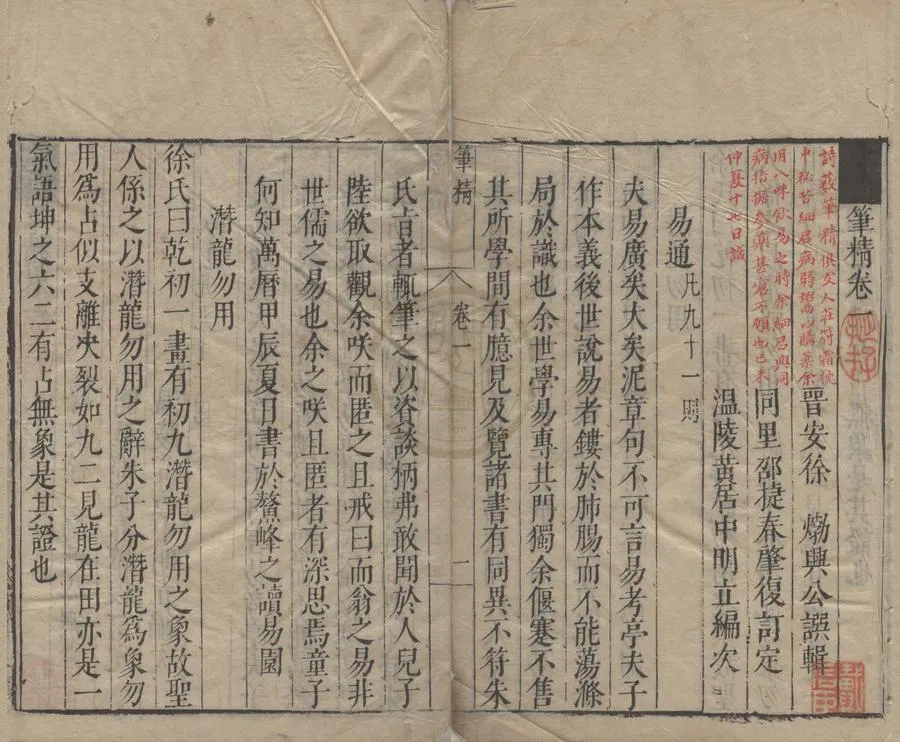 筆精卷一
晉安徐 㶿興公譔輯
同里邵捷春肇復訂定
溫陵黃居中明立編次
易通凡九十一則
夫易廣矣大矣泥章句不可言易考亭夫子
作本義後世說易者鏤於肺腸而不能蕩滌
局於識也余世學易專其門獨余偃蹇不售
其所學間有臆見及覽諸書有同異不符朱
筆精 卷一 一
氏旨者輒筆之以資談柄弗敢聞於人兒子
陸欲取觀余咲而匿之且戒曰而翁之易非
世儒之易也余之咲且匿者有深思焉童子
何知萬曆甲辰夏日書於鰲峰之讀易園
潛龍勿用
徐氏曰乾初一畫有初九潛龍勿用之象故聖
人係之以潛龍勿用之辭朱子分潛龍為象勿
用為占似支離決裂如九二見龍在田亦是一
氣語坤之六二有占無象是其證也
詩 筆精俱友人莊符霜枕
中秘 苦細君病弱 以購藥余
用八味飲易之時余細君與同
病拮据參藥甚 不頗也己未
仲夏十七日識